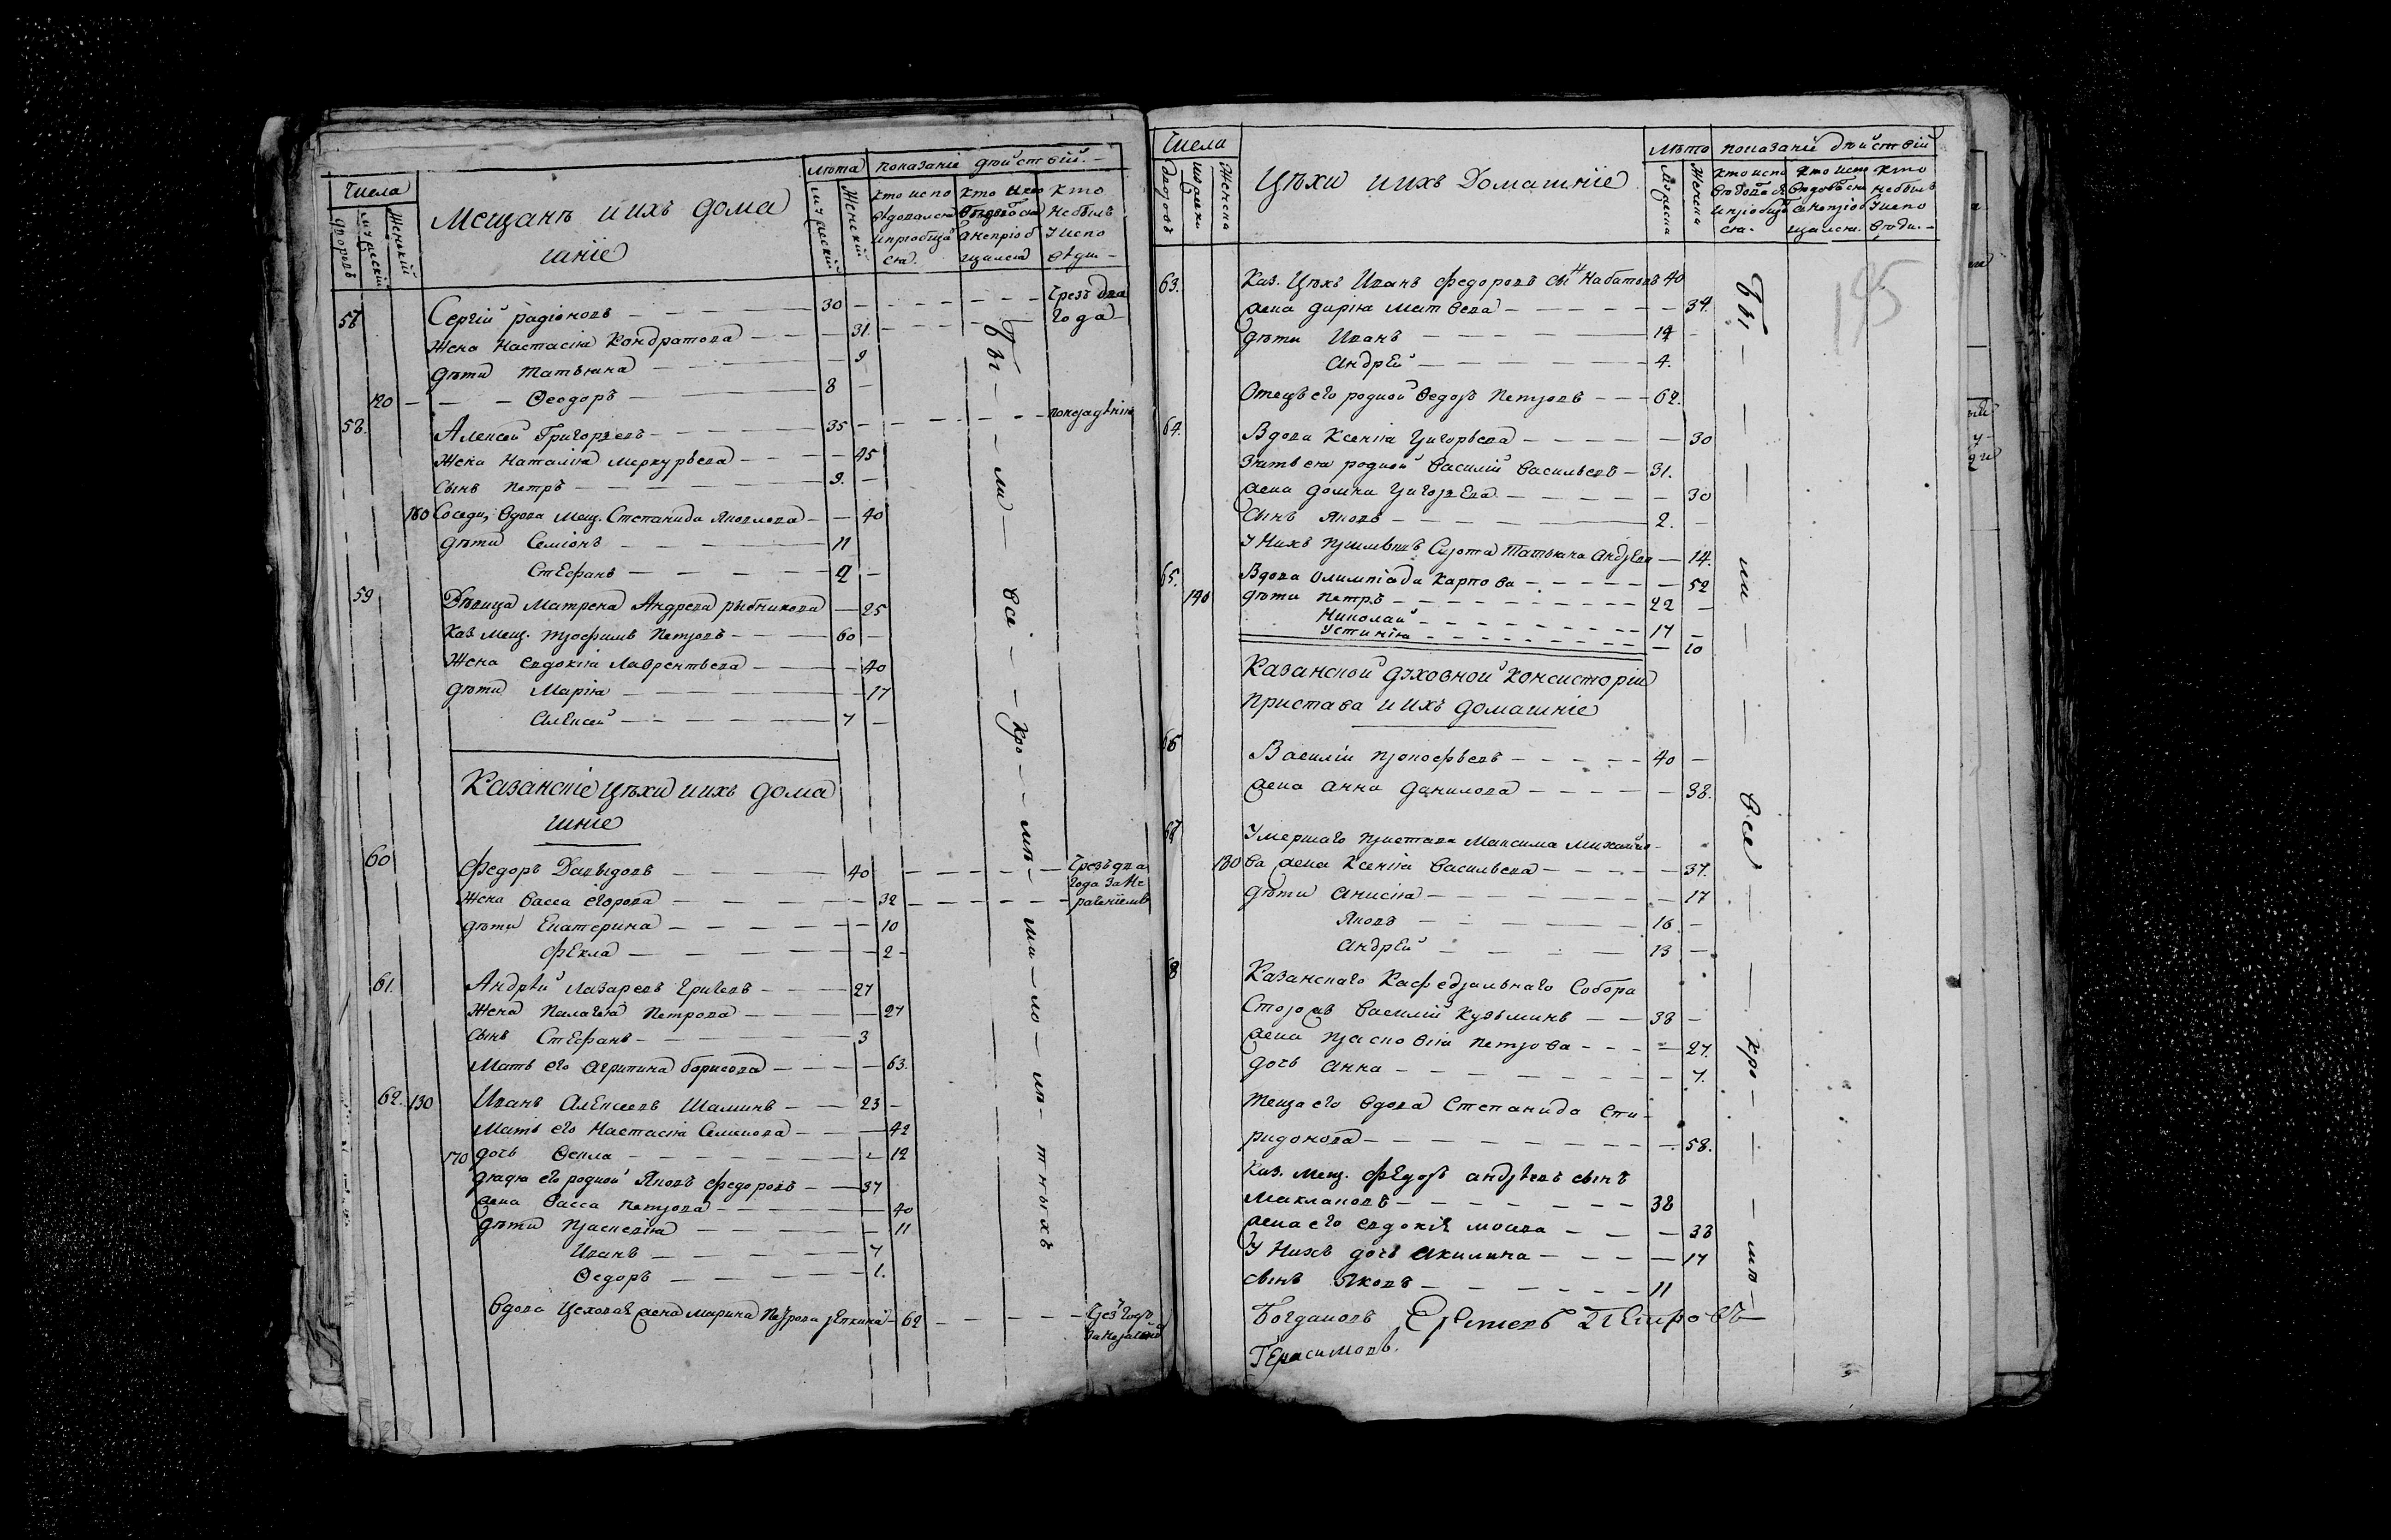 Числа
Мещанъ и ихъ дома
шніе
Лѣта
показаніе дѣйствій.
дворовъ
мужескій
Женскій
мужескій
Женскій
кто испо
вѣдовался
и пріобща
ся.
кто испо
вѣдовался
а непріоб
щался
кто
Небылъ
У испо
вѣди
57
Сергій Радіоновъ 30
Чрезъ два
года
Жена Настасія Кондратова 31.
дѣти Татьяна 9
120 Ѳеодоръ 8
58. Алексѣй Григорьевъ 35
Жена Наталія Меркурьева 45
Сынъ Петръ 9.
160 Соседи, вдова Мещ. Степанида Яковлева 40
дѣти Семіонъ 11
Стефанъ 2
59 Дѣвица Матрена Андреева рыбникова 25
Каз. Мещ. Трофимъ Петровъ 60
Жена Евдокія Лаврентьева 40
дѣти Марія 17
Алексей 7
Казанскіе цѣхи и ихъ дома
шніе
60 Федоръ Давыдовъ 40
Чрезъ два
года за Не
раченіемъ
Жена Васса Егорова 32
дѣти Екатерина 10
Фекла 2
61. Андрѣй Лазаревъ 27
Жена Палагея Петрова 27
сынъ Стефанъ 3
Мать его Агрипина Борисова 63.
62. 130 Иванъ Алексеевъ Шаминъ 23
Мать его Настасія Семенова 42
170 дочь Ѳекла 12
дядя его родной Яковъ Федоровъ 37
жена Васса Петрова 40
дѣти Прасковія 11
Иванъ 7
Ѳедоръ 1.
Вдова Цеховая жена Марина Петрова 62
Чрезъ годъ
Бы ли все кро мѣ ма ло лѣ тныхъ
Числа
Цѣхи и ихъ Домашніе
Лѣто
показаніе дѣйствій
Дворовъ
мужески
Женска
Мужеска
Женска
Кто испо
вѣдовался
и пріобщ
ся.
Кто испо
вѣдовался
а непріоб
щался.
Кто
небылъ
У испо
вѣди.
195
63. Каз. Цѣхъ Иванъ Федоровъ сынъ Набатовъ 40
жена Дарія Матвева 34.
дѣти Иванъ 14
Андрей 4.
Отецъ его родной Ѳедоръ Петровъ 62.
64. Вдова Ксенія Григорьева 30
Зять ея родной Василій Васильевъ 31.
жена Домна Григорьева 30
сынъ Яковъ 2.
У Нихъ Сирота Татьяна Андреева 14.
65. Вдова Олимпіада Карпова 52
140 дѣти Петръ 22
Николай 17
Устинія 20
Казанской Духовной Консисторіи
Пристава и ихъ домашніе
66 Василіи Прокофьевъ 40
жена Анна Данилова 38.
67 Умершаго Пристава Максима Михайло
180 ва жена Ксенія Васильева 37.
дѣти Анисія 17
Яковъ 16
Андрей 13
68 Казанскаго Кафедральнаго Собора
Сторожъ Василій Кузьминъ 38
жена Прасковія Петрова 27.
дочь Анна 7.
Теща его вдова Степанида Спи-
ридонова 58.
Каз. Мещ. Федоръ Андреевъ сынъ
Маклаковъ 38
жена его Евдокія 33
У Нихъ дочь Акилина 17
сынъ Яковъ 11
Богдановъ
Герасимовъ.
Бы ли все кро мѣ